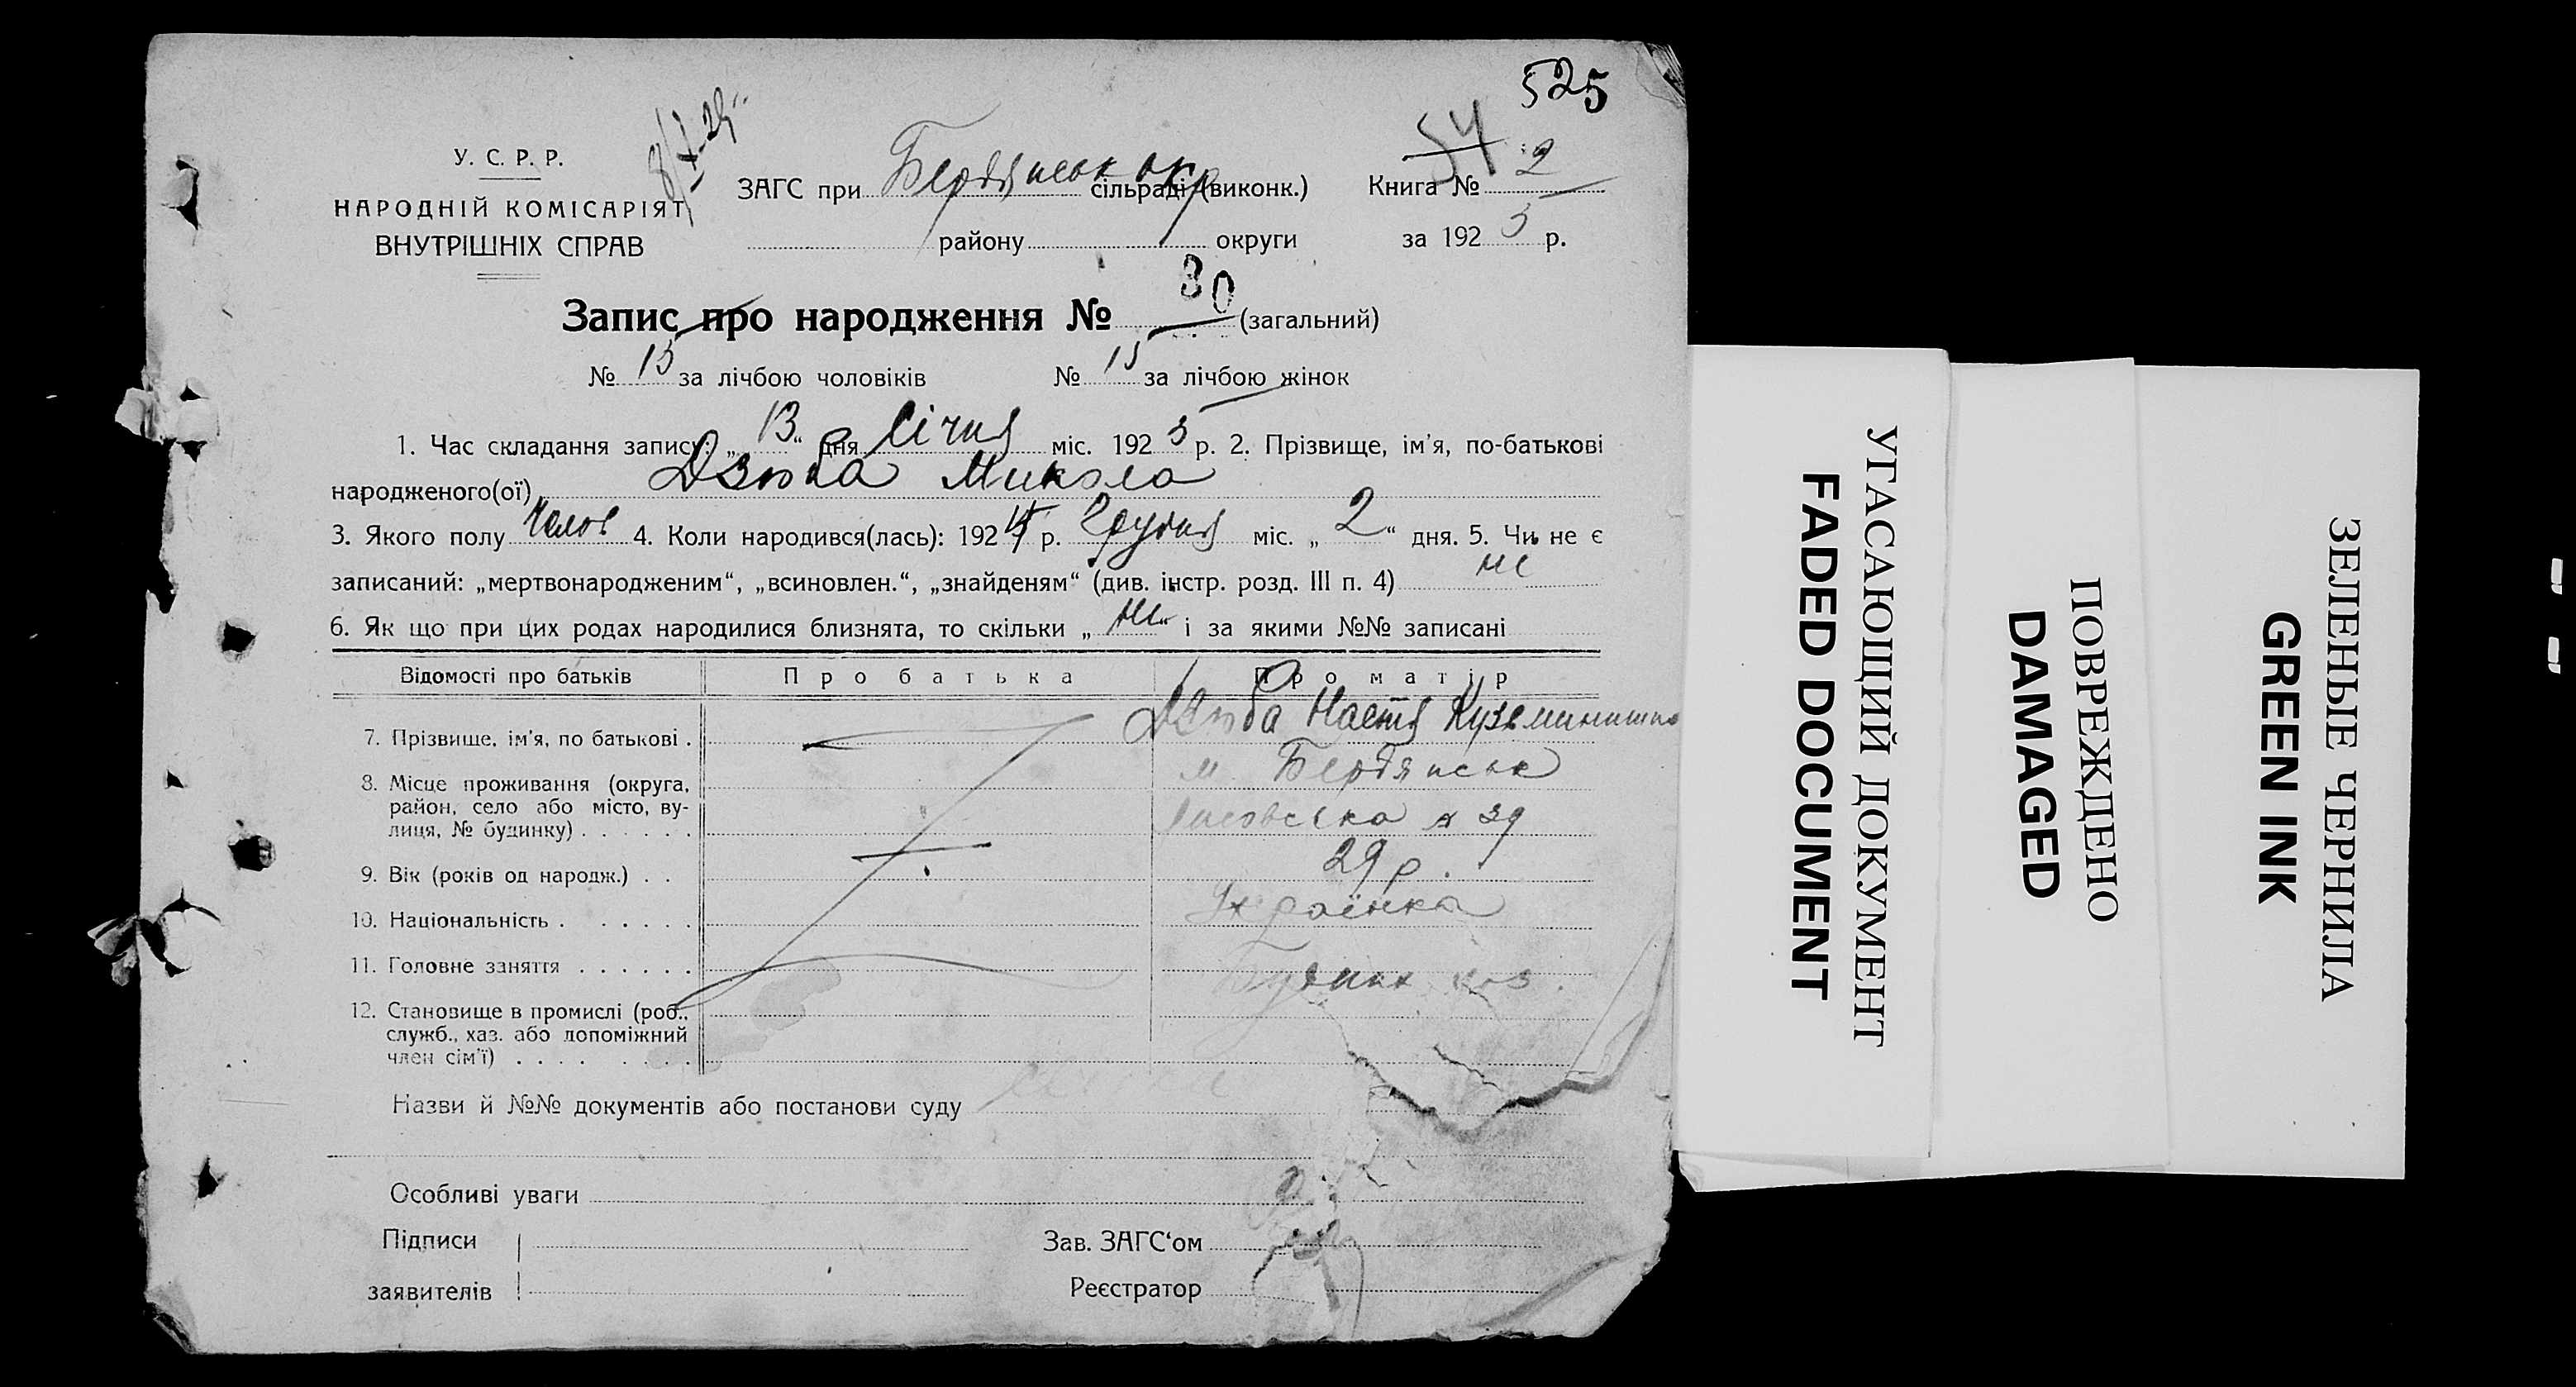 525
54
У. С. Р. Р.
НАРОДНІЙ КОМІСАРІЯТ
ВНУТРІШНІХ СПРАВ
ЗАГС при Бердянськ окр сільраді (виконк.)
Книга № 2
району округи
за 1925 р.
Запис про народження № 30 (загальний)
№ 15 за лічбою чоловіків № 15 за лічбою жінок
1. Час складання запису: „13“ дня Січня міс. 1925 р. 2. Прізвище, ім'я, по-батькові
народженого(ої) Дзюба Микола
3. Якого полу Чолов 4. Коли народився(лась): 1924 р. Грудня міс. „2“ дня. 5. Чи не є
записаний: „мертвонародженим“, „всиновлен.“, „знайденям“ (див. інстр. розд. III п. 4) не
6. Як що при цих родах народилися близнята, то скільки „не“ і за якими №№ записані
Відомості про батьків Про батька Про матір
7. Прізвище, ім'я, по батькові . Дзюба Настя
8. Місце проживання (округа, м. Бердянськ
район, село або місто, ву-
лиця, № будинку) . . . . . . 39
9. Вік (років од народж.) . . 29 р.
10. Національність . . . . . . Українка
11. Головне заняття . . . . . .
12. Становище в промислі (роб.,
служб., хаз. або допоміжний
член сім'ї) . . . . . . . .
Назви й №№ документів або постанови суду
Особливі уваги
Підписи
заявителів
Зав. ЗАГС‘ом
Реєстратор
УГАСАЮЩИЙ ДОКУМЕНТ
FADED DOCUMENT
ПОВРЕЖДЕНО
DAMAGED
ЗЕЛЕНЫЕ ЧЕРНИЛА
GREEN INK